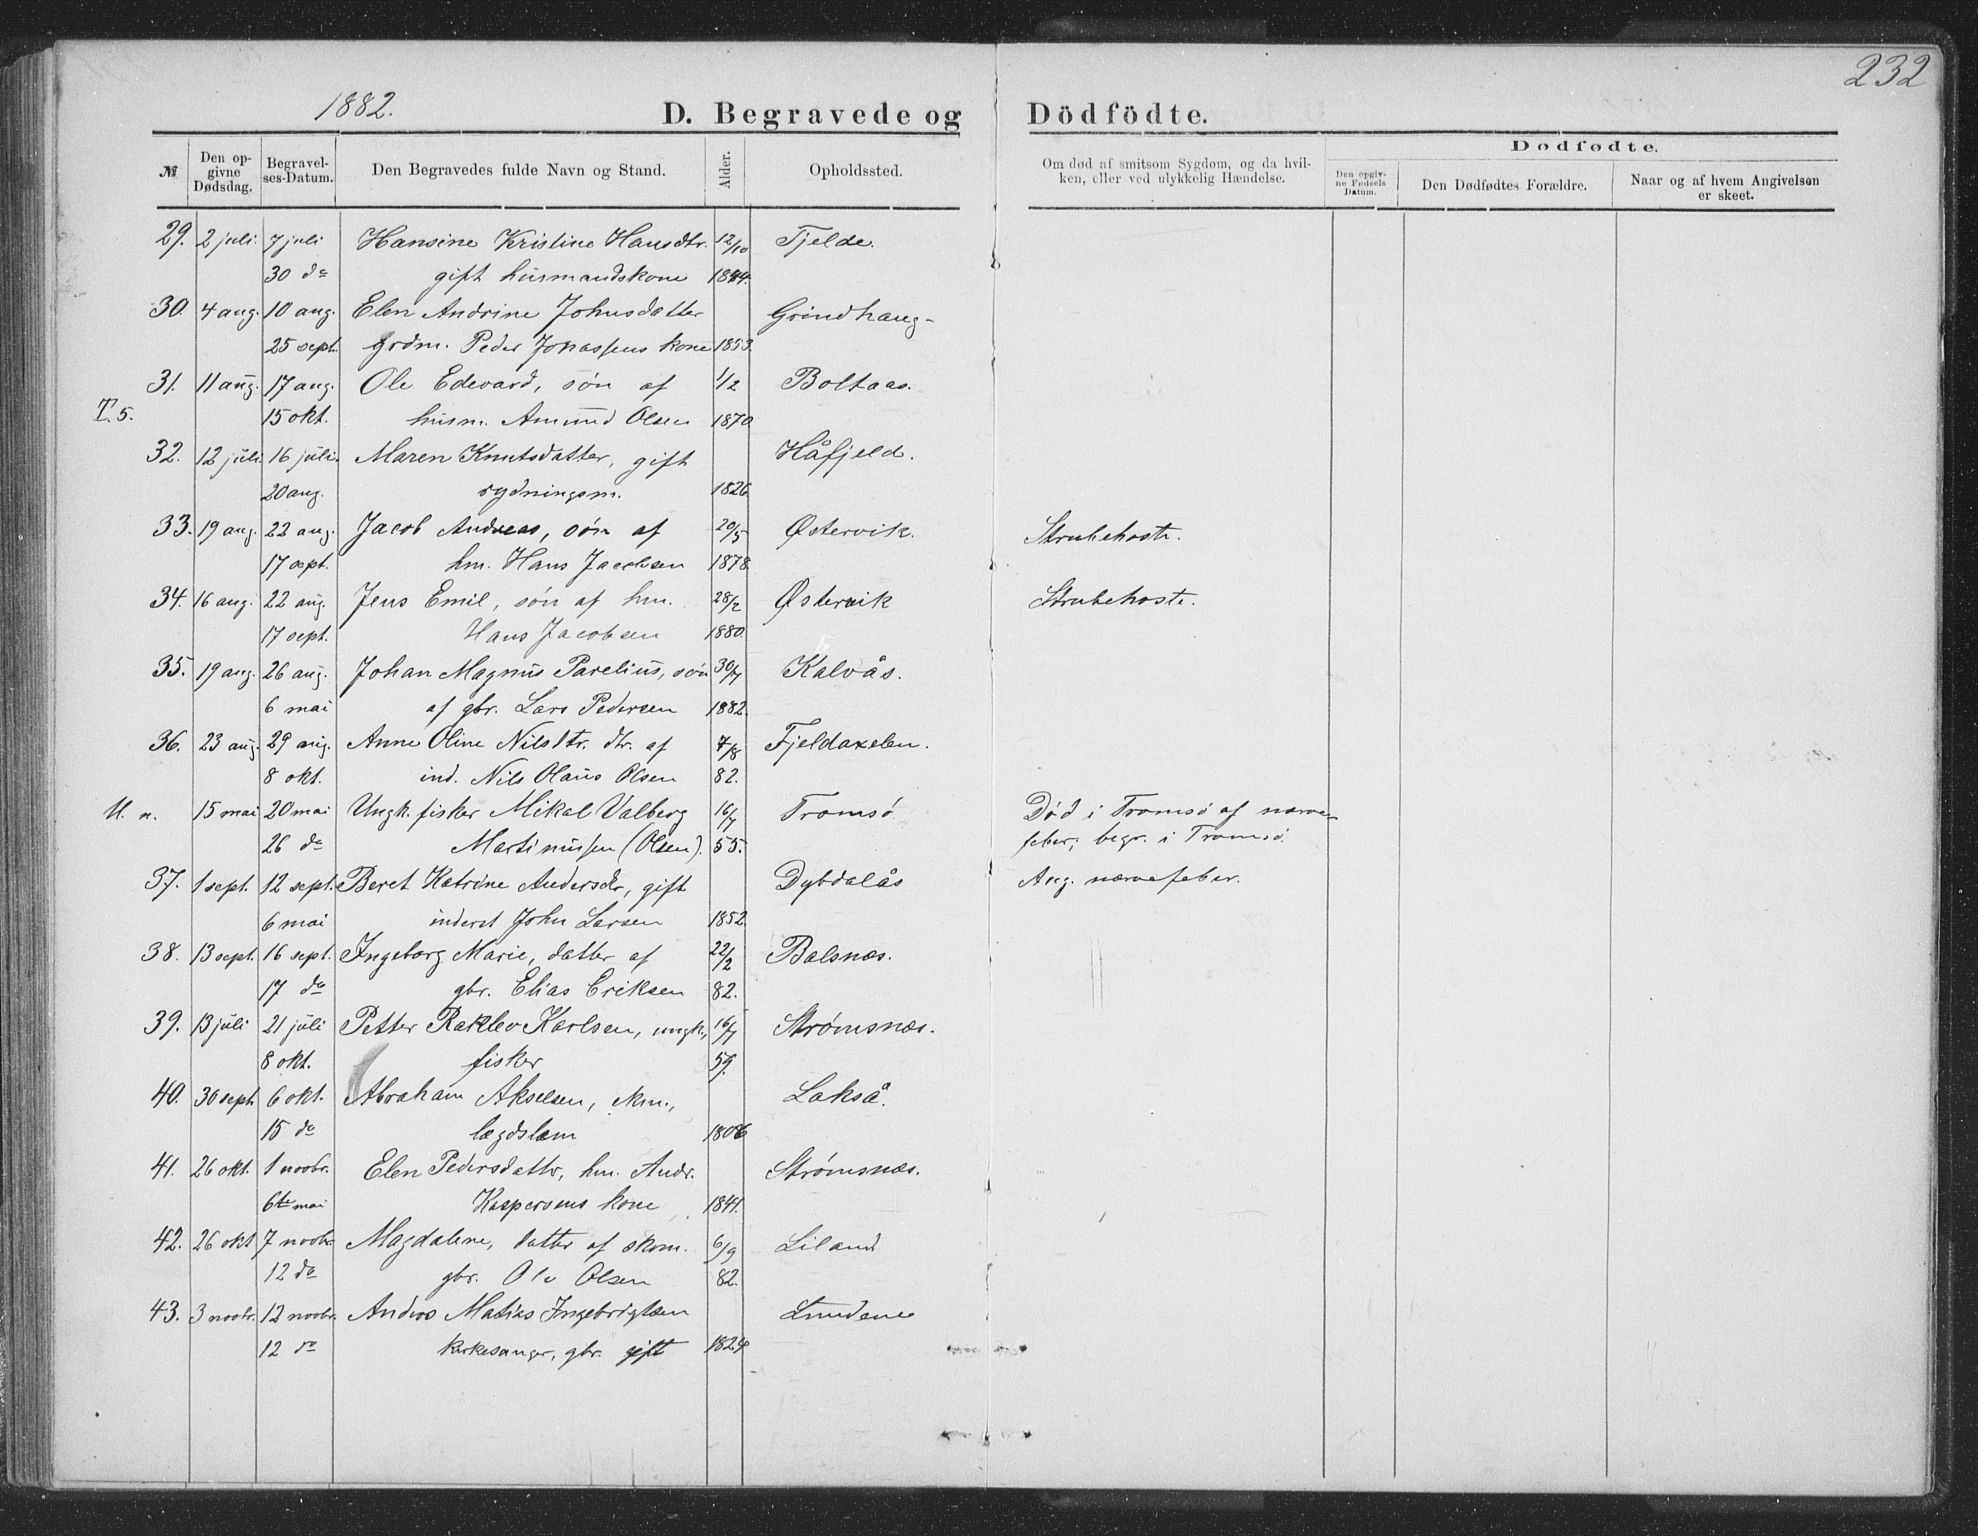 232
1882.
D. Begravede og Dödfödte.
№ Den opgivne Dødsdag. Begravelses-Datum. Den Begravedes fulde Navn og Stand. Alder. Opholdssted. Om død af smitsom Sygdom, og da hvilken, eller ved ulykkelig Hændelse. Dødfødte. Den opgivne Fødsels Datum. Den Dødfødtes Forældre. Naar og af hvem Angivelsen er skeet.
29. 2 juli. 7 juli Hansine Kristine Hansdtr. 12/10 Fjelde.
30 do gift husmandskone 1844.
30. 4 aug. 10 aug. Elen Andrine Johnsdatter Grindhaug
25 sept. grdm. Peder Jonassens kone 1853.
31. 11 aug. 17 aug. Ole Edevard, søn af 1/2 Boltaas.
T. 5. 15 okt. husm. Amund Olsen 1870
32. 12 juli. 16 juli. Maren Knutsdatter, gift Håfjeld.
20 aug. rydningsm. 1826
33. 19 aug. 22 aug. Jacob Andreas, søn af 20/5 Østervik. Strubehoste.
17 sept. hm. Hans Jacobsen 1878
34. 16 aug. 22 aug. Jens Emil, søn af hm. 28/2 Østervik Strubehoste.
17 sept. Hans Jacobsen 1880.
35. 19 aug. 26 aug. Johan Magnus Parelius, søn 30/7 Kalvås.
6 mai af gbr. Lars Pedersen 1882.
36. 23 aug. 29 aug. Anne Oline Nilsdtr. dtr. af 7/8 Fjeldaxelen.
8 okt. ind. Nils Olaus Olsen 82.
U. n. 15 mai 20 mai Ungk. fisker Mikal Valberg 16/7 Tromsø Død i Tromsø af nerve-
26 do Martinussen (Olsen). 55. feber; begr. i Tromsø.
37. 1 sept. 12 sept. Beret Katrine Andersdr, gift Dybdalås Ang. nervefeber.
6 mai inderst John Larsen 1852
38. 13 sept. 16 sept. Ingeborg Marie, datter af 22/2 Balsnæs.
17 do gbr. Elias Eriksen 82.
39. 13 juli 21 juli Petter Raklev Karlsen, ungk., 16/7 Strømsnæs.
8 okt. fisker 59.
40. 30 sept. 6 okt. Abraham Akselsen, ekm., Lakså.
15 do lægdslem 1806
41. 26 okt. 1 novbr. Elen Pedersdattr, hm. Andr. Strømsnæs.
6te mai Kaspersens kone 1841.
42. 26 okt 7 novbr. Magdalene, datter af skom. 6/9 Liland
12 do gbr. Ole Olsen 82.
43. 3 novbr. 12 novbr. Andreas Matias Ingebrigtsen Lundene
12 do kirkesanger, gbr. gift 1824